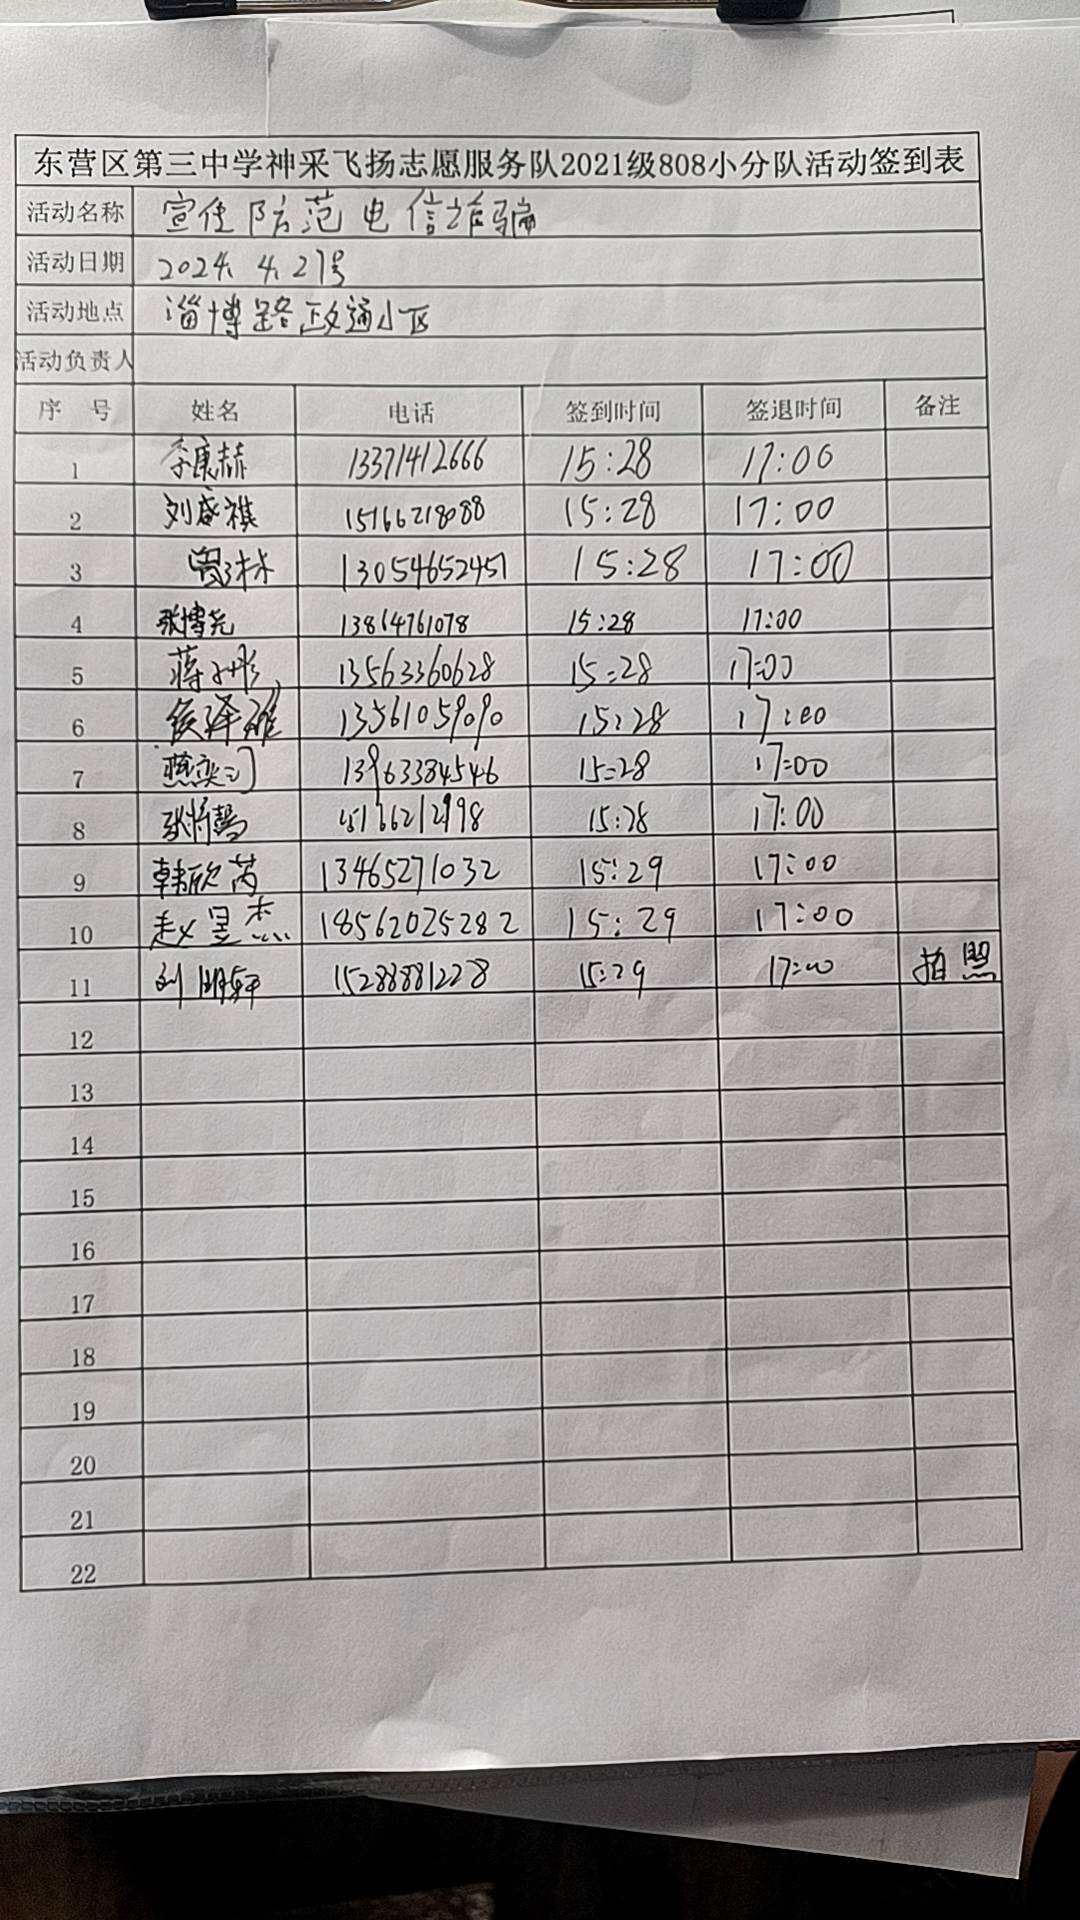 东营区第三中学神采飞扬志愿服务队2021级808小分队活动签到表
活动名称 宣传防范电信诈骗
活动日期 2024.4.27号
活动地点 淄博路政通小区
活动负责人
序号 姓名 电话 签到时间 签退时间 备注
1 李康赫 13371412666 15:28 17:00
2 刘盛祺 15166218088 15:28 17:00
3 13054652451 15:28 17:00
4 张博尧 13864761078 15:28 17:00
5 蒋 13563360628 15:28 17:00
6 侯泽雅 13561059090 15:28 17:00
7 燕奕 13963384546 15:28 17:00
8 张 15:28 17:00
9 韩欣芮 13465271032 15:29 17:00
10 赵昱杰 18562025282 15:29 17:00
11 刘明轩 15288881228 15:29 17:00 拍照
12
13
14
15
16
17
18
19
20
21
22